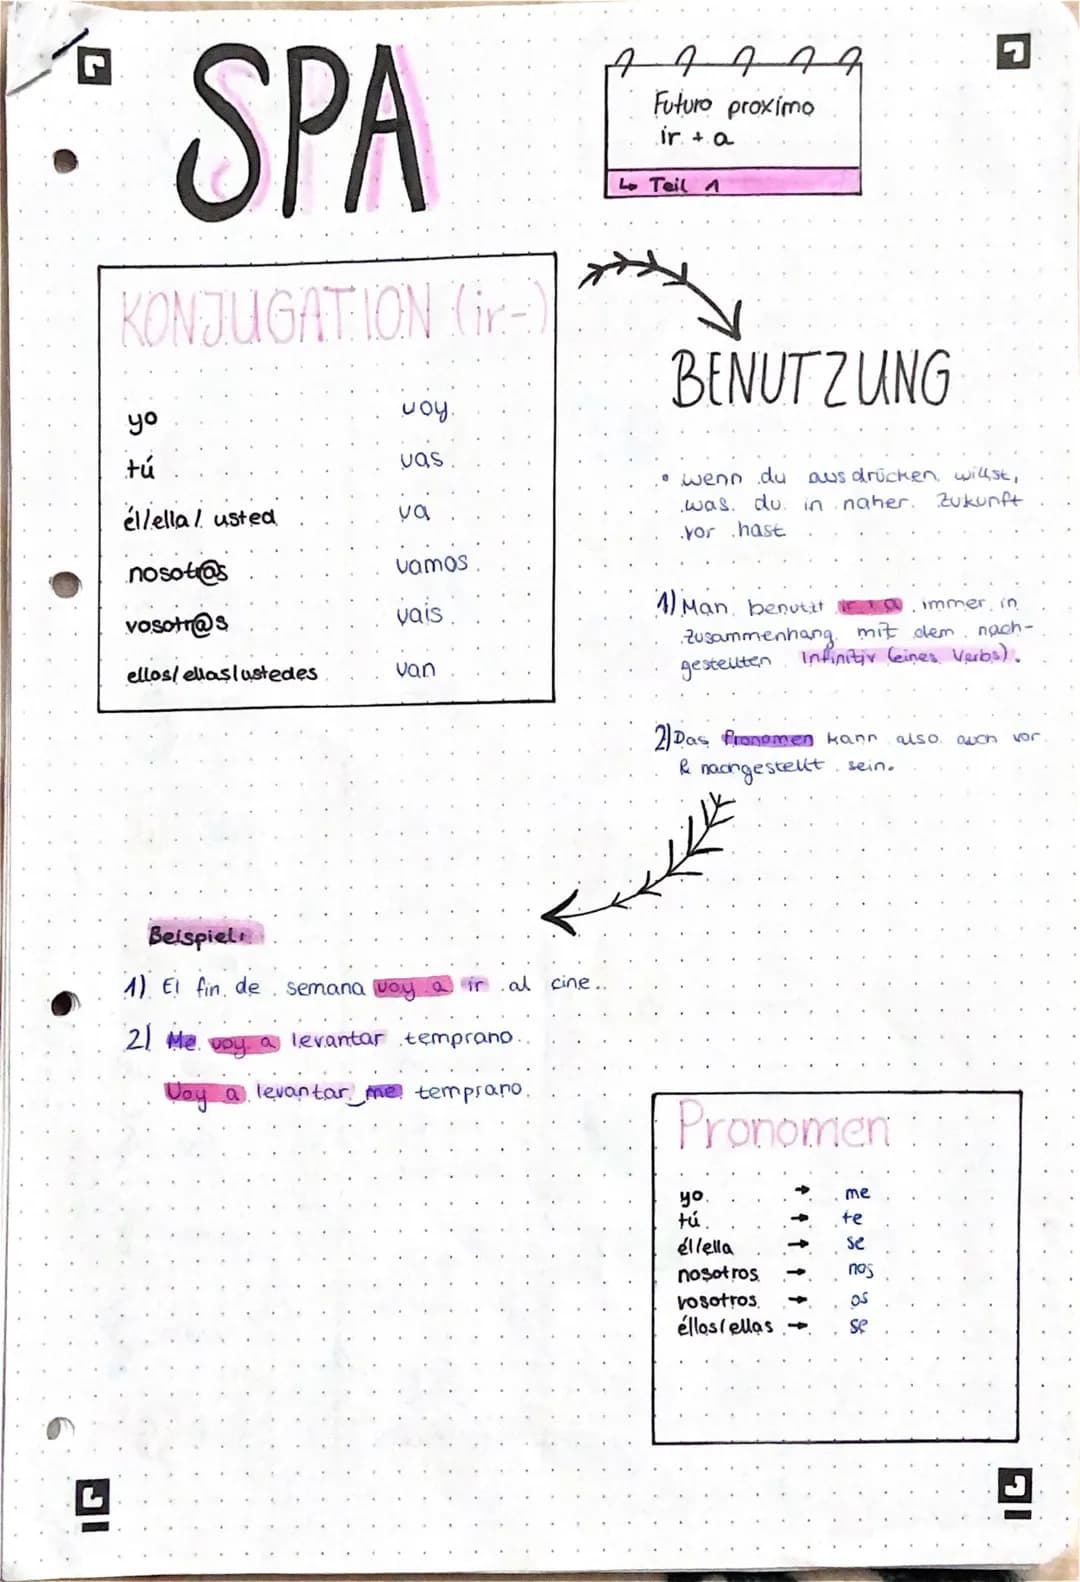 SPA
Futuro proximo
ir + a
↳ Teil 1
KONJUGATION (ir-)
yo voy
tú vas
él/ella/ usted va
nosotr@s vamos
vosotr@s vais
ellos/ellas/ustedes van
BENUTZUNG
• wenn du ausdrücken willst,
was du in naher Zukunft
vor hast
1) Man benutzt ir + a immer in
Zusammenhang mit dem nach-
gestellten Infinitiv (eines Verbs).
2) Das Pronomen kann also auch vor
& nachgestellt sein.
Beispiel:
1) El fin de semana voy a ir al cine..
2) Me voy a levantar temprano.
Voy a levantar_me temprano.
Pronomen
yo → me
tú → te
él/ella → se
nosotros → nos
vosotros → os
éllos/ellas → se